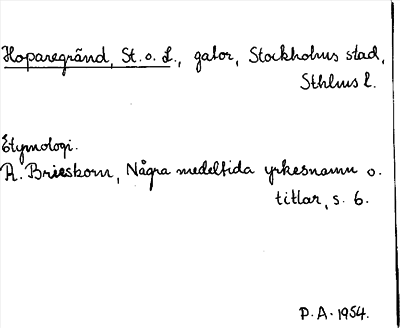 Hoparegränd, St. o. L., gator, Stockholms stad,
Sthlms l.
Etymologi.
R. Brieskorn, Några medeltida yrkesnamn o.
titlar, s. 6.
P.A. 1954.